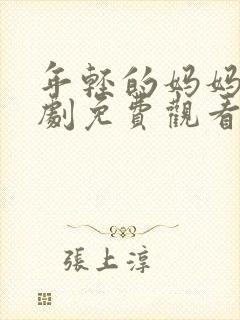 年輕的媽媽
劇免費觀看
張上淳